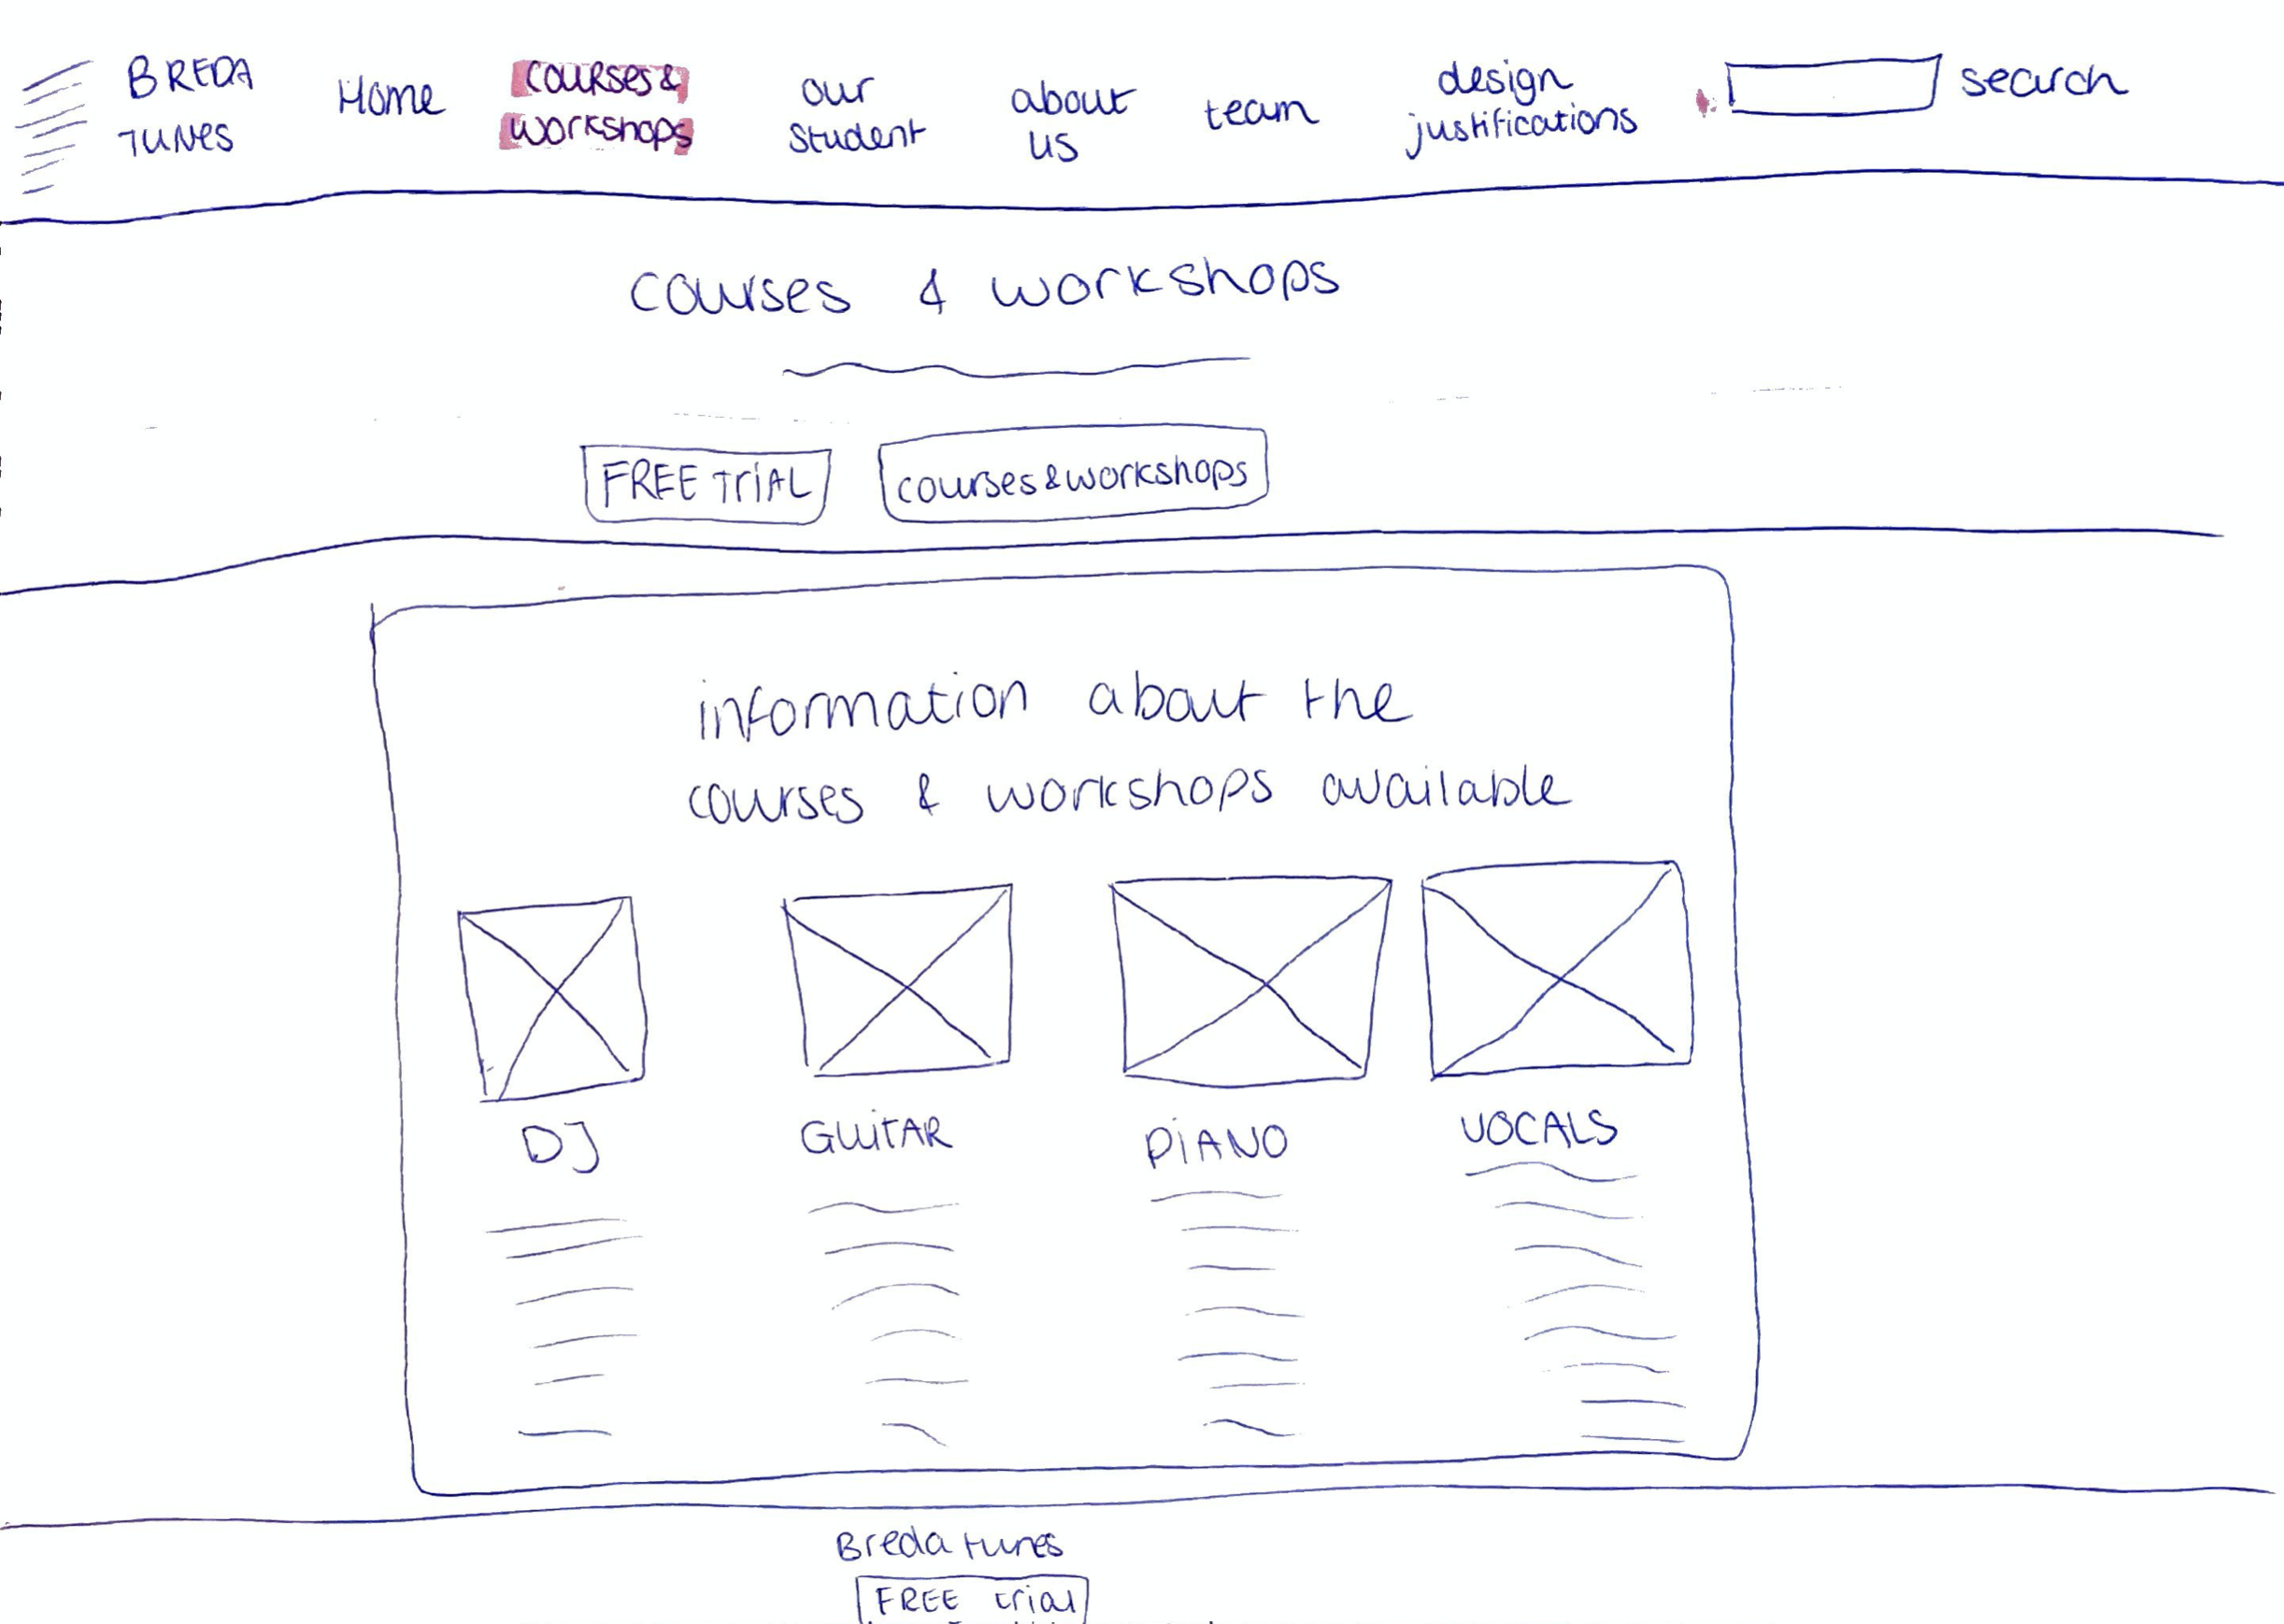 BREDA
TUNES
Home
courses &
workshops
our
student
about
us
team
design
justifications
search
courses & workshops
FREE TRIAL
courses&workshops
information about the
courses & workshops available
DJ
GUITAR
PIANO
VOCALS
Breda tunes
FREE trial